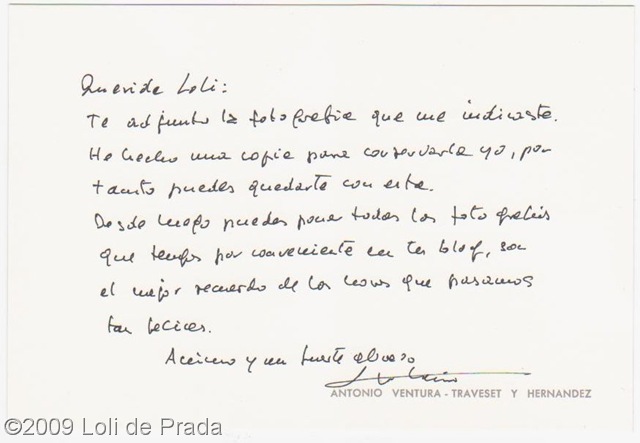 Querida Loli:
Te adjunto la fotografía que me indicaste.
He hecho una copia para conservarla yo, por
tanto puedes quedarte con esta.
Desde luego puedes poner todas las fotografías
que tengas por conveniente en tu blog, son
el mejor recuerdo de las horas que pasamos
tan felices.
y un fuerte abrazo
Antonio
ANTONIO VENTURA - TRAVESET Y HERNANDEZ
©2009 Loli de Prada